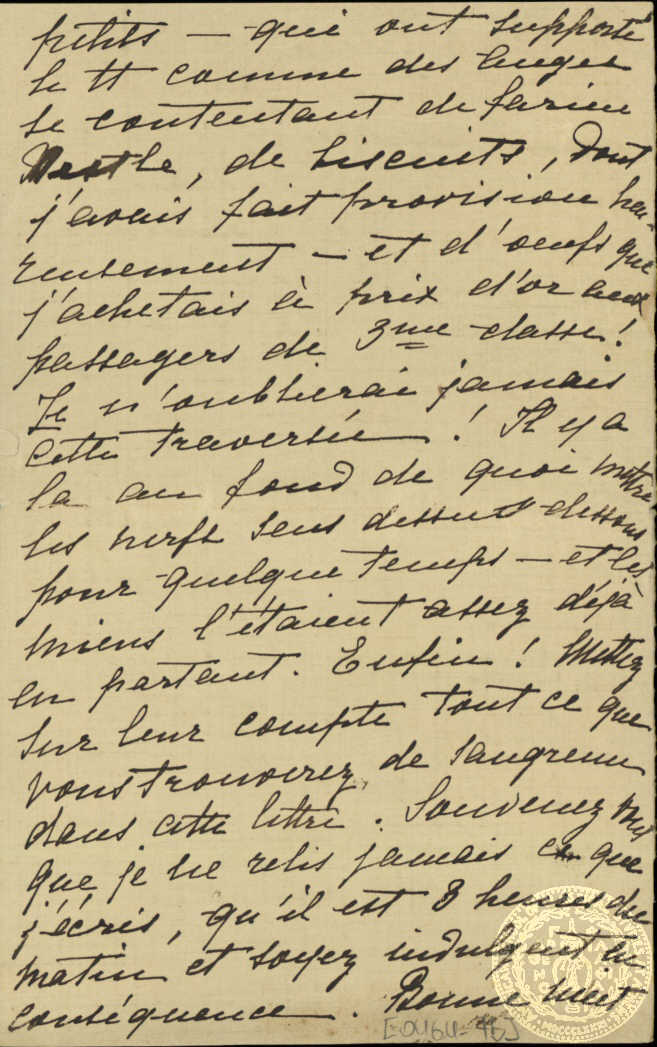 petits — qui ont supporté
le tt comme des anges
se contentant de farine
Nestle, de biscuits, dont
j'avais fait provision heu-
reusement — et d'oeufs que
j'achetais à prix d'or aux
passagers de 3me classe!
Je n'oublierai jamais
cette traversée! Il y a
la au fond de quoi mettre
les nerfs sens dessus dessous
pour quelque temps — et les
miens l'étaient assez déjà
en partant. Enfin! Mettez
sur leur compte tout ce que
vous trouverez de saugrenu
dans cette lettre. Souvenez vous
que je ne relis jamais ce que
j'écris, qu'il est 3 heures du
matin et soyez indulgent en
conséquence. Bonne nuit